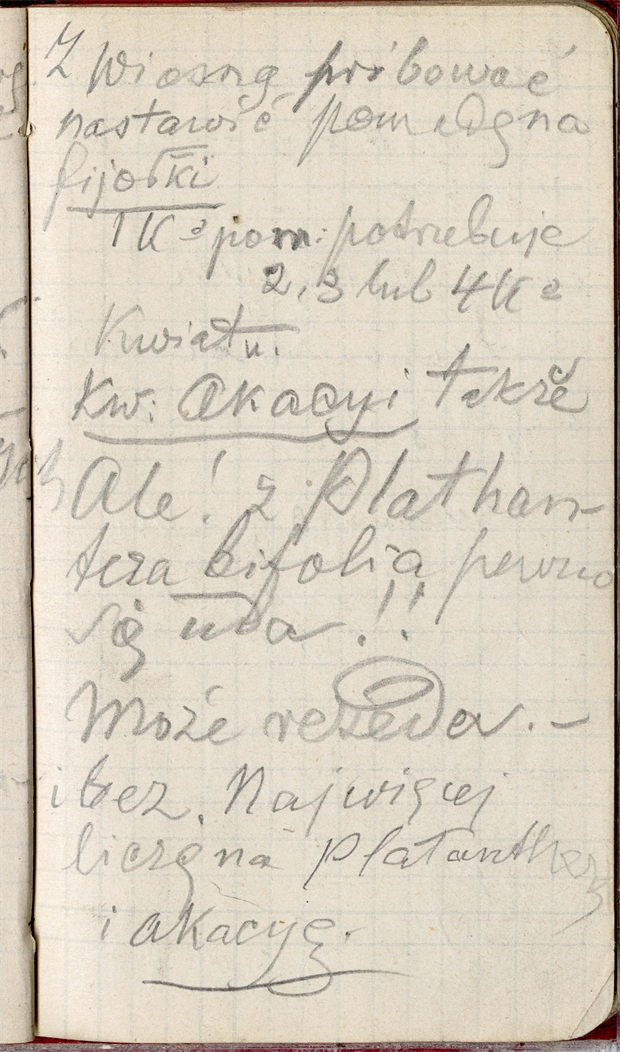 Z Wiosną próbować
nastawić pomadę na
fijołki
1 Ko pom: potrzebuje
2, 3 lub 4 Ko
Kwiatu.
Kw: akacyi także
Ale! z Plathan-
tera bifolia pewno
się uda!!
Może rezeda. –
i bez. Najwięcej
liczę na Platantherę
i akacyę.